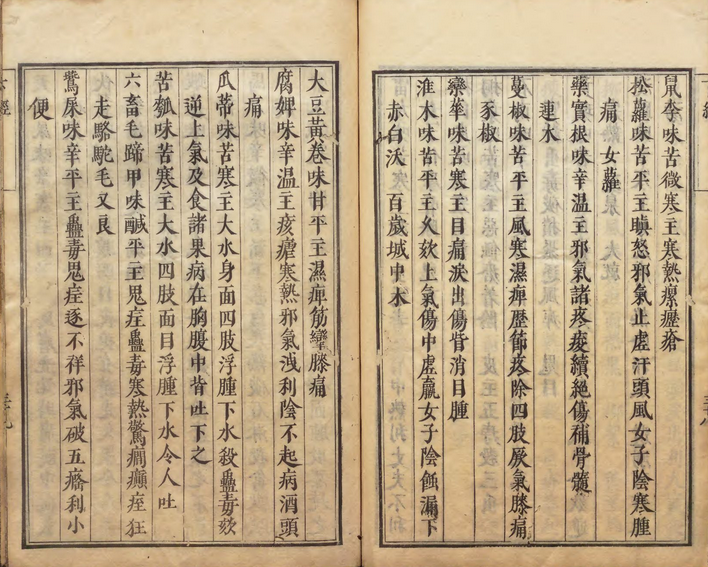 鼠李味苦微寒主寒熱瘰癧瘡
松蘿味苦平主瞋怒邪氣止虛汗頭風女子陰寒腫
痛一名女蘿
藥實根味辛溫主邪氣諸痹疼痠續絕傷補骨髓一名
連木
蔓椒味苦平主風寒濕痺歷節疼除四肢厥氣膝痛
一名豕椒
欒華味苦寒主目痛淚出傷眥消目腫
淮木味苦平主久欬上氣傷中虛羸女子陰蝕漏下
赤白沃一名百歲城中木
大豆黃卷味甘平主濕痺筋攣膝痛
腐婢味辛溫主痎瘧寒熱邪氣洩利陰不起病酒頭
痛
瓜蒂味苦寒主大水身面四肢浮腫下水殺蠱毒欬
逆上氣及食諸果病在胸腹中皆吐下之
苦瓠味苦寒主大水四肢面目浮腫下水令人吐
六畜毛蹄甲味鹹平主鬼疰蠱毒寒熱驚癇癲痓狂
走駱駝毛又良
鷰屎味辛平主蠱毒鬼疰逐不祥邪氣破五癃利小
便